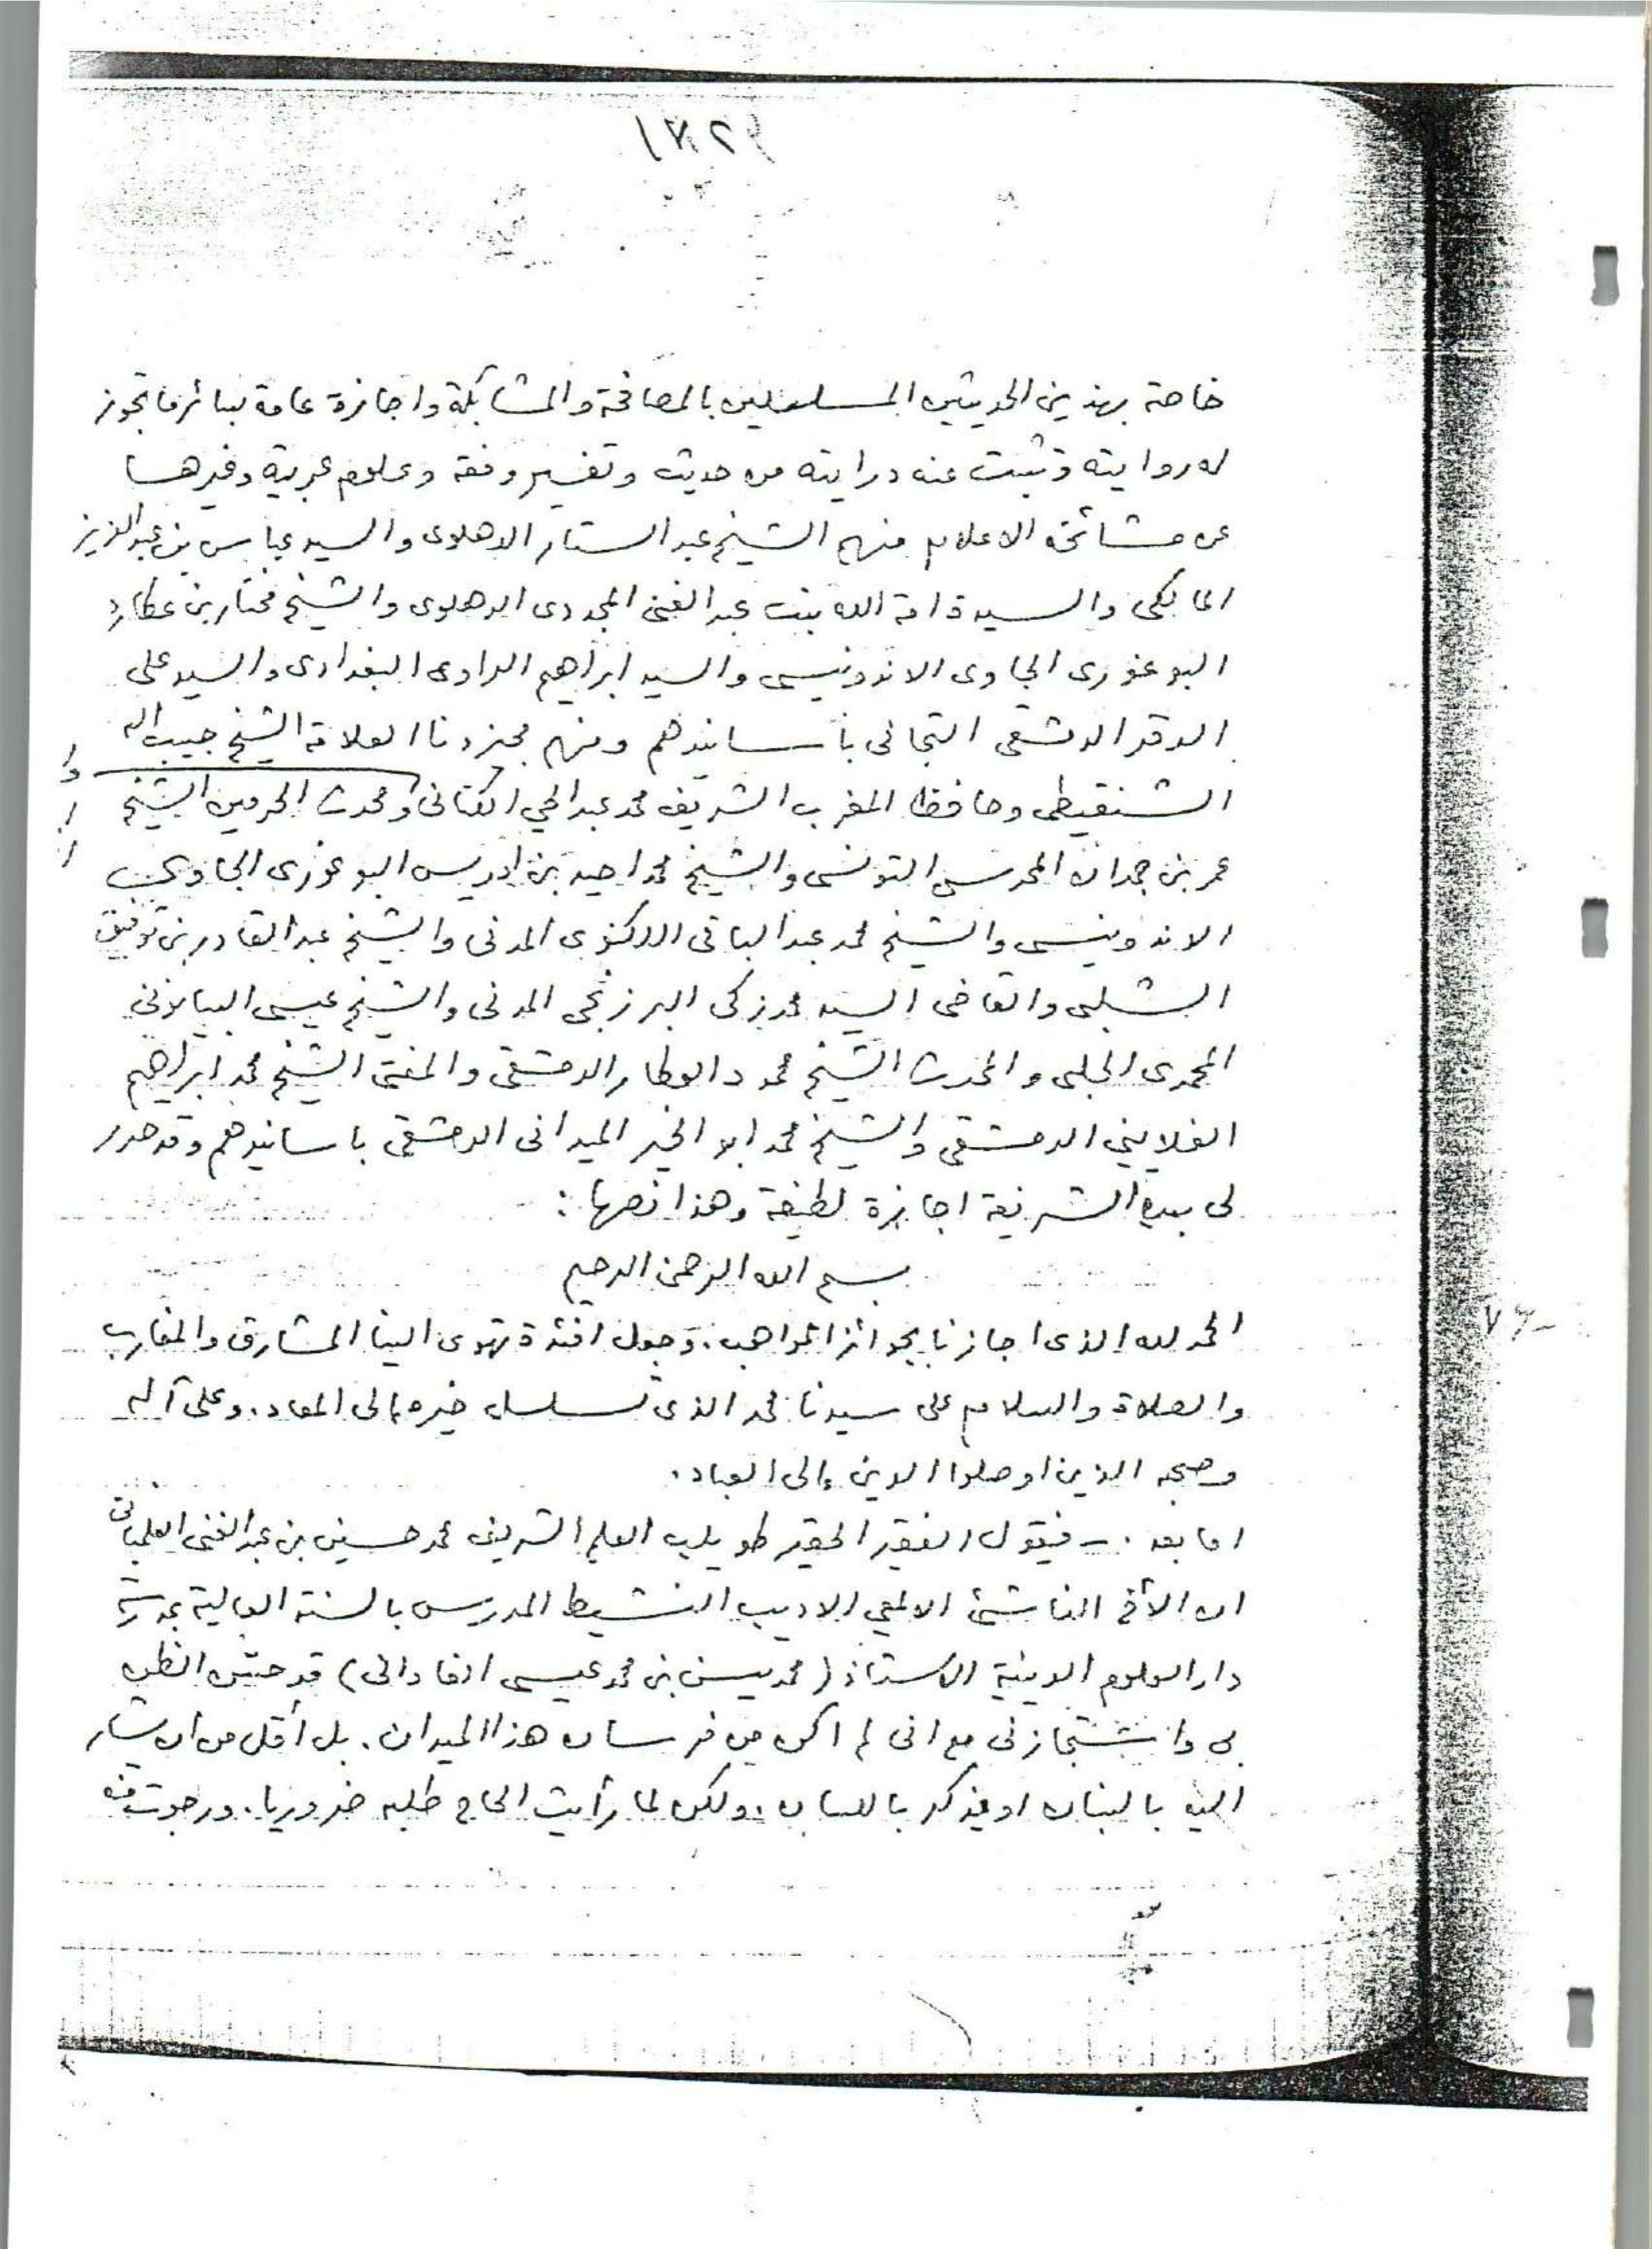 خاصة بهذين الحديثين المسلسلين بالمصافحة والمشابكة واجازة عامة بسائر ما تجوز
له روايته وثبت عنه درايته من حديث وتفسير وفقه وعلوم عربية وغيرها
عن مشائخه الاعلام منهم الشيخ عبد الستار الدهلوى والسيد عباس بن عبد العزيز
المالكى والسيدة امة الله بنت عبد الغنى المجددى الدهلوى والشيخ مختار بن عطارد
البوغورى الجاوى الاندونيسى والسيد ابراهيم الراوى البغدادى والسيد على
الدقر الدمشقى التجانى بأسانيدهم ومنهم محيزونا العلامة الشيخ حبيب الله
الشنقيطى وحافظ المغرب الشريف محمد عبد الحي الكتانى ومحدث الحرمين الشيخ
عمر بن حمدان المحرسى التونسى والشيخ محمد احيد بن ادريس البوغورى الجاوى
الاندونيسى والشيخ محمد عبد الباقى اللكنوى المدنى والشيخ عبد القادر بن توفيق
الشلبى والقاضى السيد محمد زكى البرزنجى المدنى والشيخ عيسى البيانونى
المحمدى الحلبى والمحدث الشيخ محمود العطار الدمشقى والمفتى الشيخ محمد ابراهيم
الغلاييني الدمشقى والشيخ محمد ابو الخير الميدانى الدمشقى باسانيدهم وقد حرر
لى بيده الشريفة اجازة لطيفة وهذا نصها:
بسم الله الرحمن الرحيم
الحمد لله الذى اجازنا بجوائز المواهب. وجعل افئدة تهوى الينا المشارق والمغارب
والصلاة والسلام على سيدنا محمد الذى تسلسل خيره إلى المعاد. وعلى آله
وصحبه الذين اوصلوا الدين إلى العباد.
اما بعد .- فيقول الفقير الحقير طويلب العلم الشريف محمد حسين بن عبد الغنى الفلمبانى
ان الأخ الناشئ الالمعي الاديب النشيط المدرس بالسنة العالية بمدرسة
دار العلوم الدينية الاستاذ (محمد يسن بن محمد عيسى الفادانى) قد حسن الظن
بى واستجازنى مع انى لم اكن من فرسان هذا الميدان. بل أقل من ان يشار
اليه بالبنان او يذكر باللسان. ولكن لما رأيت الحاح طلبه ضروريا. ورجوت منه